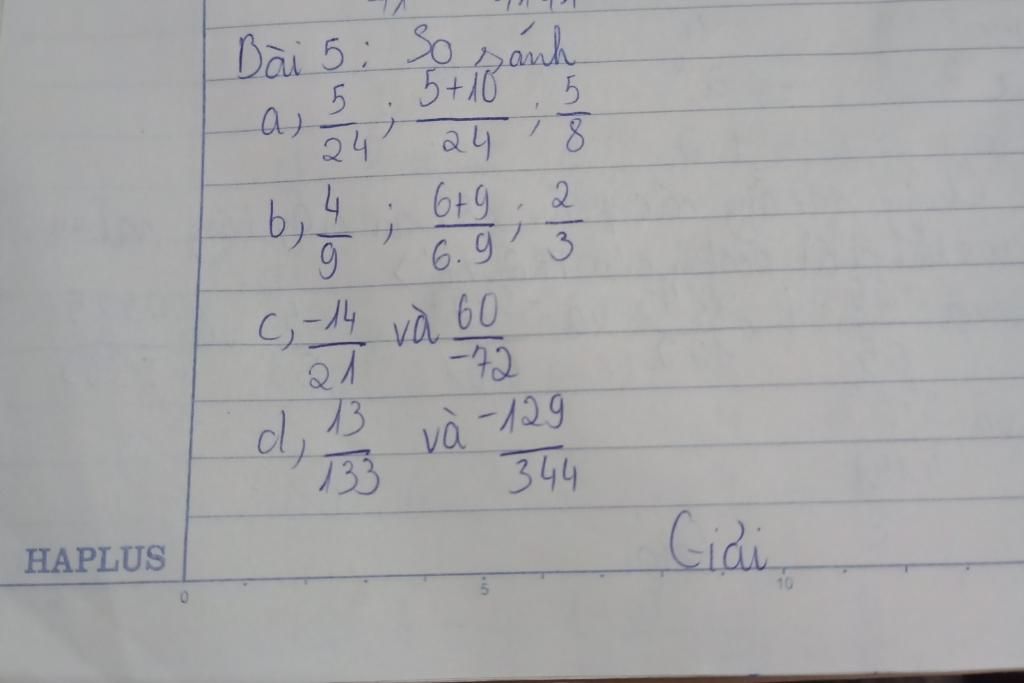 Bài 5: So sánh
a, 5/24 ; 5+10/24 ; 5/8
b, 4/9 ; 6+9/6.9 ; 2/3
c, -14/21 và 60/-72
d, 13/133 và -129/344
Giải
HAPLUS
0 5 10